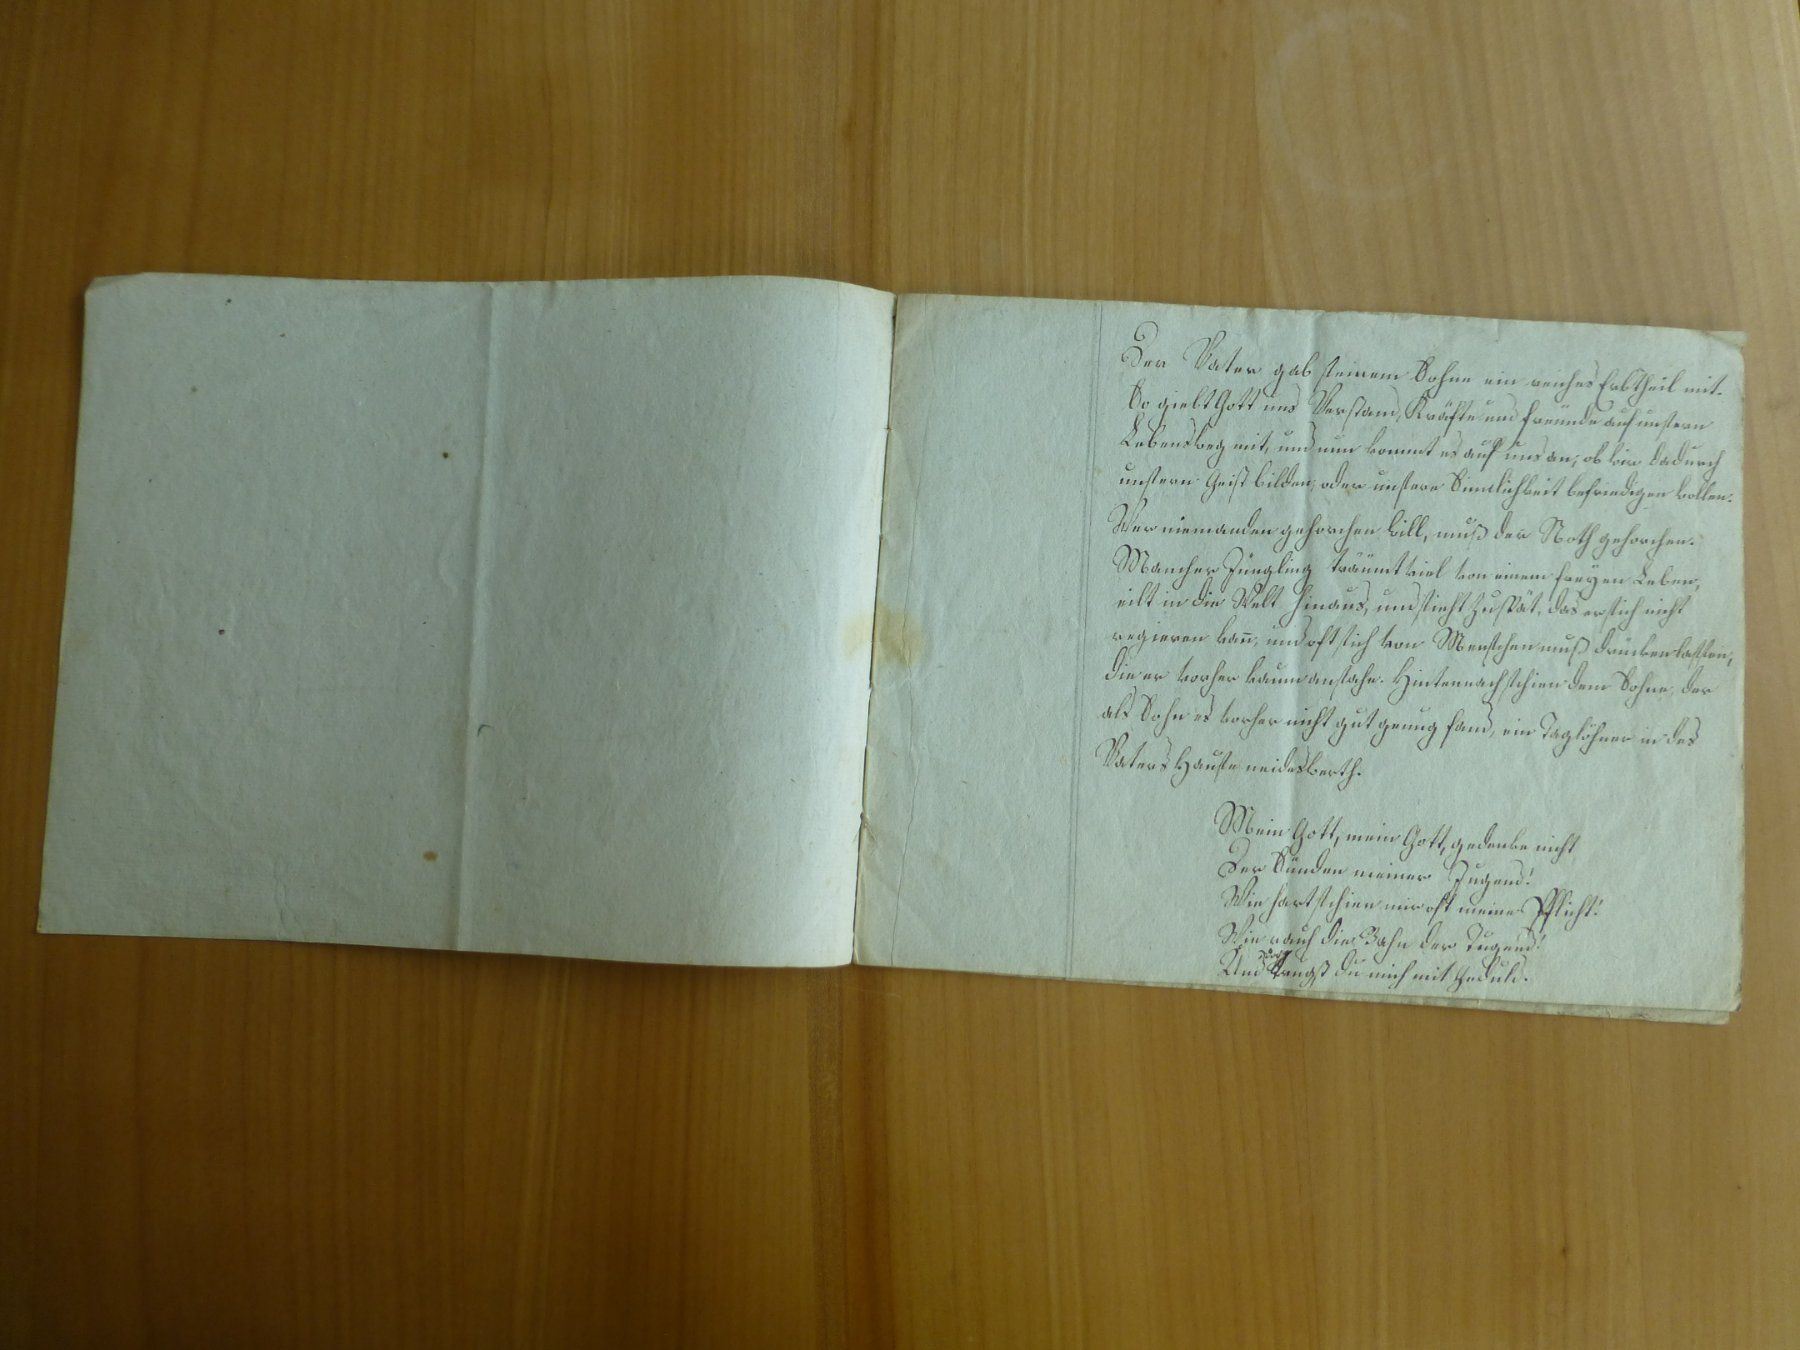 Der Vater gab seinem Sohne ein reiches Erbtheil mit.
So giebt Gott uns Verstand, Kräfte und Freünde auf unsern
Lebensweg mit, und nun kommt es auf uns an, ob wir dadurch
unsern Geist bilden, oder unsere Sinnlichkeit befriedigen wollen.
Wer niemanden gehorchen will, muß der Noth gehorchen.
Mancher Jüngling träümt viel von einem freyen Leben,
eilt in die Welt hinaus, und sieht zu spät, das er sich nicht
regieren kañ, und oft sich von Menschen muß drücken lassen,
die er vorher kaum ansahe. Hintennach schien dem Sohne, der
als Sohn es vorher nicht gut genug fand, ein Taglöhner in des
Vaters Hause neideswerth.
Mein Gott, mein Gott, gedenke nicht
Der Sünden meiner Jugend!
Wie hart schien mir oft meine Pflicht!
Wie rauh die Bahn der Tugend!
Und trugst du mich mit Geduld.